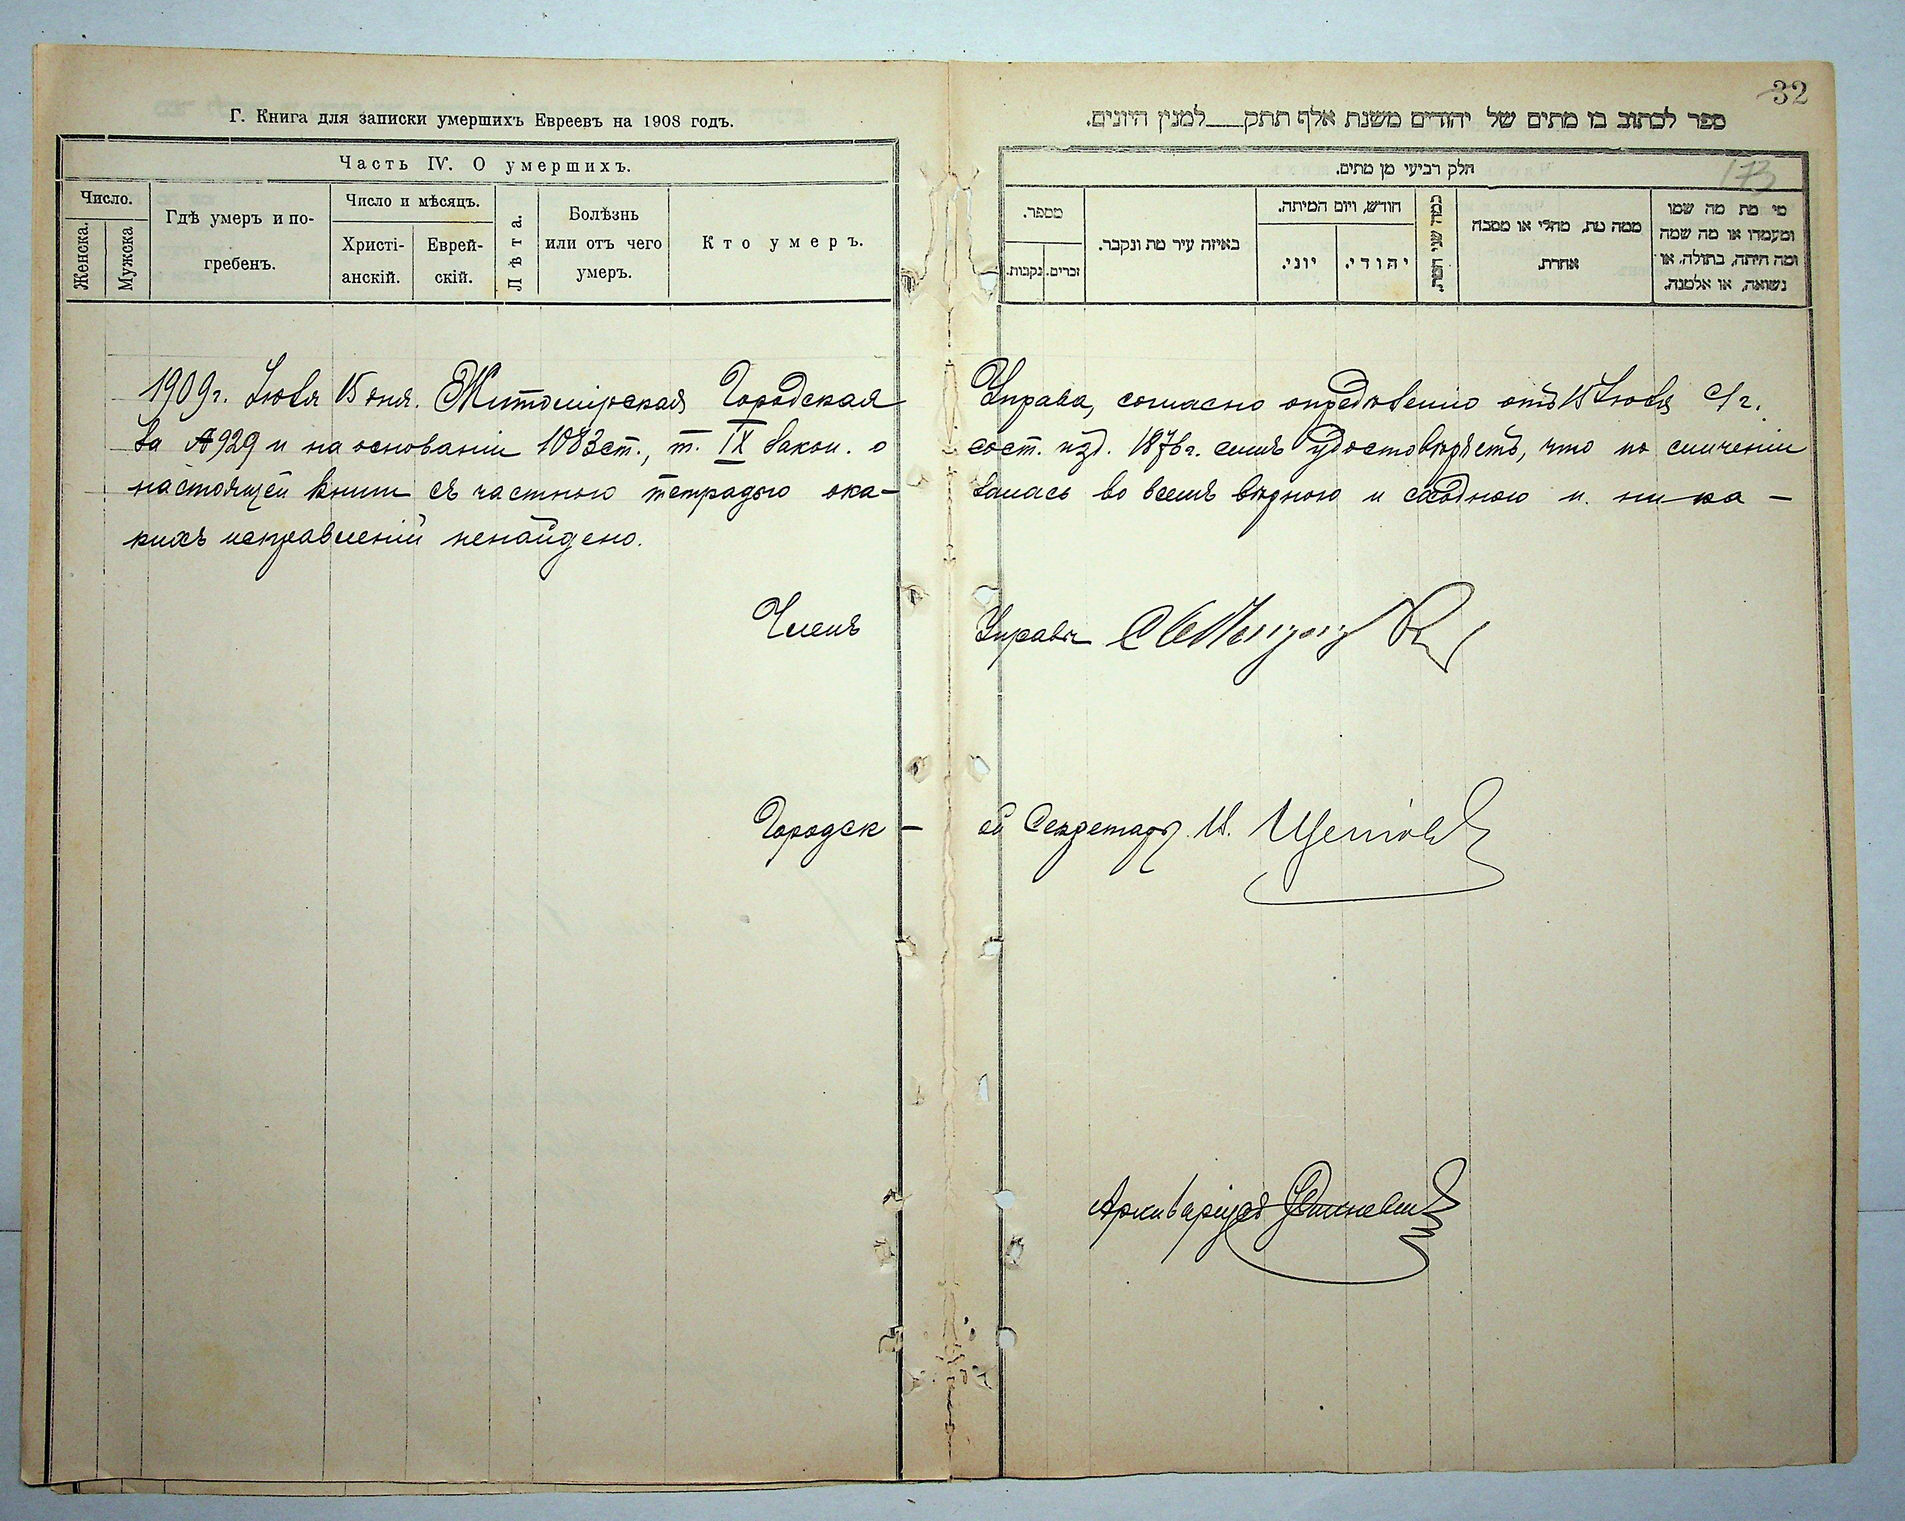 32
173
Г. Книга для записки умершихъ Евреевъ на 1908 годъ.
Часть IV. О умершихъ.
Число.
Женска.
Мужска
Гдѣ умеръ и по-
гребенъ.
Число и мѣсяцъ.
Христі-
анскій.
Еврей-
скій.
Лѣта.
Болѣзнь
или отъ чего
умеръ.
Кто умеръ.
ספר לכתוב בו מתים של יהודים משנת אלף תתק___למנין היונים.
חלק רביעי מן מתים.
מספר.
נקבות.
זכרים.
באיזה עיר מת ונקבר.
חודש, ויום המיתה.
יוני.
יהודי.
ממה מת, מחלי או מסבה
אחרת.
מי מת מה שמו
ומעמדו או מה שמה
ומה היתה, בתולה, או
נשואה, או אלמנה.
1909г. Іюля 15 дня. Житомірская Городская Управа, согласно опредѣленію отъ 15 Іюля с/г.
за № 929 и на основаніи 1083 ст., т. IX Закон. о сост. изд. 1876 г. симъ удостовѣряетъ, что по сличеніи
настоящей книги съ частною тетрадью ока- залась во всемъ вѣрною и сходною и ника-
кихъ исправленій ненайдено.
Членъ Управы
Городск- ой Секретарь
Архиваріусъ